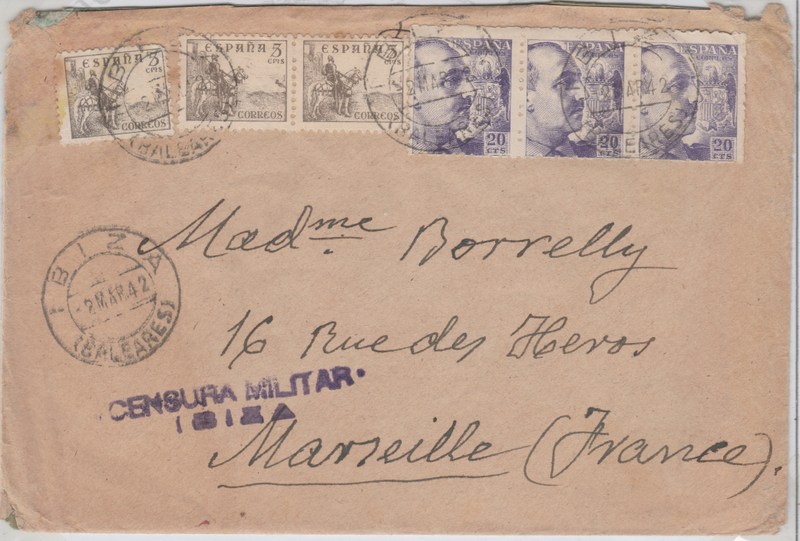 ESPAÑA 3 CTS CORREOS
ESPAÑA 3 CTS CORREOS
ESPAÑA 3 CTS CORREOS
ESPAÑA CORREOS 20 CTS
ESPAÑA CORREOS 20 CTS
ESPAÑA CORREOS 20 CTS
IBIZA
2 MAR 42
(BALEARES)
Madme Borrelly
16 Rue des Heros
Marseille (France).
IBIZA
2 MAR 42
(BALEARES)
CENSURA MILITAR
IBIZA